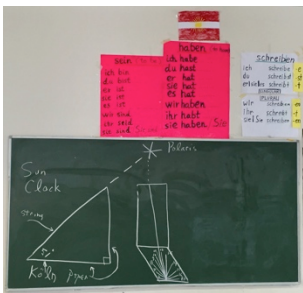 sein
ich bin
du bist
er ist
sie ist
es ist
wir sind
ihr seid
sie sind
haben
ich habe
du hast
er hat
sie hat
es hat
wir haben
ihr habt
sie haben Sie
schreiben
ich schreibe -e
du schreibst -st
er/sie/es schreibt -t
wir schreiben -en
ihr schreibt -t
sie/Sie schreiben -en
Polaris
Sun
Clock
string
Köln